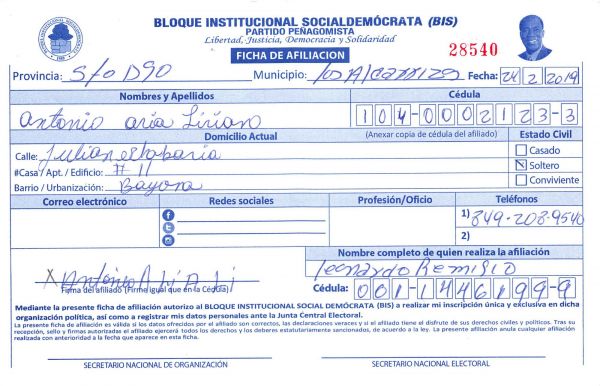 BLOQUE INSTITUCIONAL SOCIALDEMÓCRATA (BIS)
PARTIDO PEÑAGOMISTA
Libertad, Justicia, Democracia y Solidaridad
FICHA DE AFILIACION
28540
Provincia: S/o Dgo Municipio: los Alcarrizos Fecha: 24/2/2019
Nombres y Apellidos
Cédula
Antonio aria Liriano
104-0002123-3
Domicilio Actual (Anexar copia de cédula del afiliado) Estado Civil
Calle: Julian estabaria
Casado
#Casa / Apt. / Edificio: # 11
Soltero
Barrio / Urbanización: Bayona
Conviviente
Correo electrónico Redes sociales Profesión/Oficio Teléfonos
1) 849-208-9540
2)
Nombre completo de quien realiza la afiliación
Leonardo Remigio
X Antonio A
Firma del afiliado (Firme igual que en la Cédula)
Cédula: 001-1446199-9
Mediante la presente ficha de afiliación autorizo al BLOQUE INSTITUCIONAL SOCIAL DEMÓCRATA (BIS) a realizar mi inscripción única y exclusiva en dicha
organización política, así como a registrar mis datos personales ante la Junta Central Electoral.
La presente ficha de afiliación es válida si los datos ofrecidos por el afiliado son correctos, las declaraciones veraces y si el afiliado tiene el disfrute de sus derechos civiles y políticos. Tras su
recepción, sello y firmas autorizadas el afiliado ejercerá todos los derechos y los deberes estatutariamente sancionados, de acuerdo a la ley. La presente afiliación anula cualquier afiliación
realizada con anterioridad a la fecha que aparece en esta ficha.
SECRETARIO NACIONAL DE ORGANIZACIÓN
SECRETARIO NACIONAL ELECTORAL